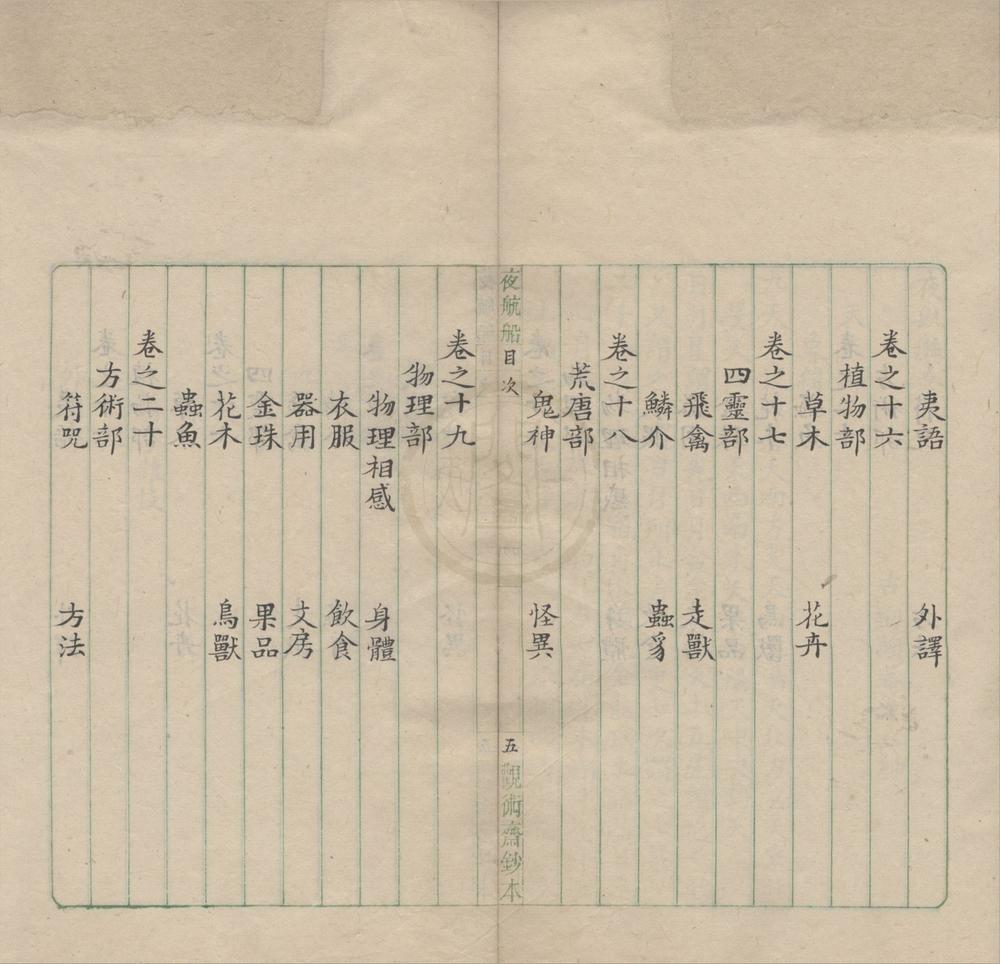 夷語 外譯
卷之十六
植物部
草木 花卉
卷之十七
四靈部
飛禽 走獸
鱗介 蟲豸
卷之十八
荒唐部
鬼神 怪異
夜航船 目次 五 觀術齋鈔本
卷之十九
物理部
物理相感 身體
衣服 飲食
器用 文房
金珠 果品
花木 鳥獸
蟲魚
卷之二十
方術部
符咒 方法